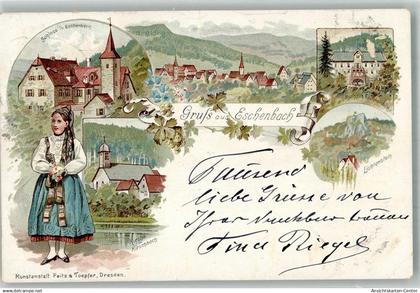 Schloss in Eschenbach
Gruss aus Eschenbach
Tausend
liebe Grüsse von
Ihrer dankbar treuen
Tina Riegel
Kunstanstalt Feitz & Toepfer, Dresden.
Ansichtskarten-Center